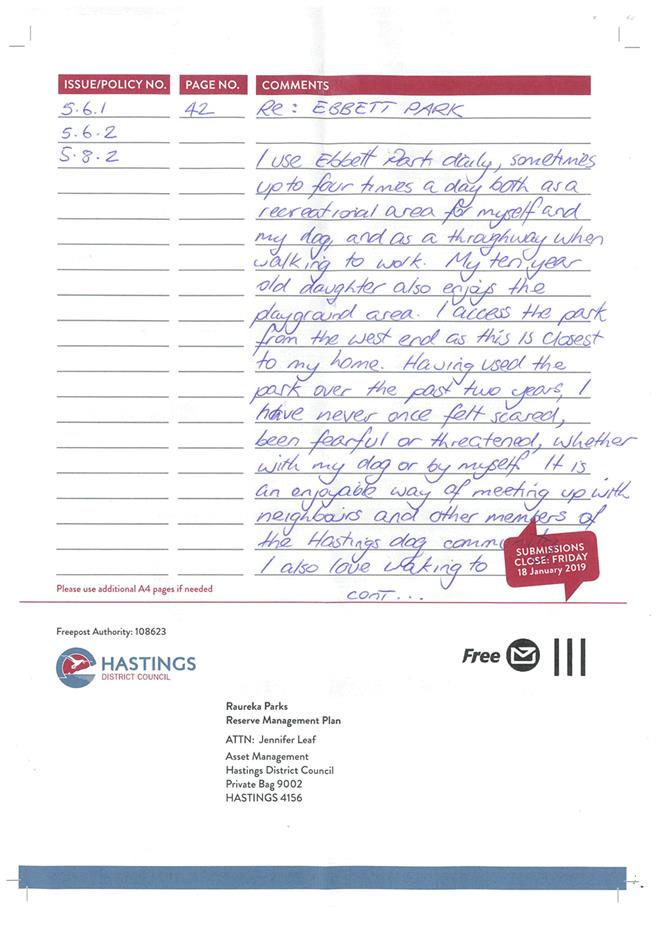 ISSUE/POLICY NO. PAGE NO. COMMENTS
5.6.1 42 Re: EBBETT PARK
5.6.2
5.8.2 I use Ebbett Park daily, sometimes
up to four times a day both as a
recreational area for myself and
my dog, and as a throughway when
walking to work. My ten year
old daughter also enjoys the
playground area. I access the park
from the west end as this is closest
to my home. Having used the
park over the past two years, I
have never once felt scared,
been fearful or threatened, whether
with my dog or by myself. It is
an enjoyable way of meeting up with
neighbours and other members of
the Hastings dog community
I also love waking to
cont...
SUBMISSIONS
CLOSE: FRIDAY
18 January 2019
Please use additional A4 pages if needed
Freepost Authority: 108623
HASTINGS
DISTRICT COUNCIL
Free
Raureka Parks
Reserve Management Plan
ATTN: Jennifer Leaf
Asset Management
Hastings District Council
Private Bag 9002
HASTINGS 4156